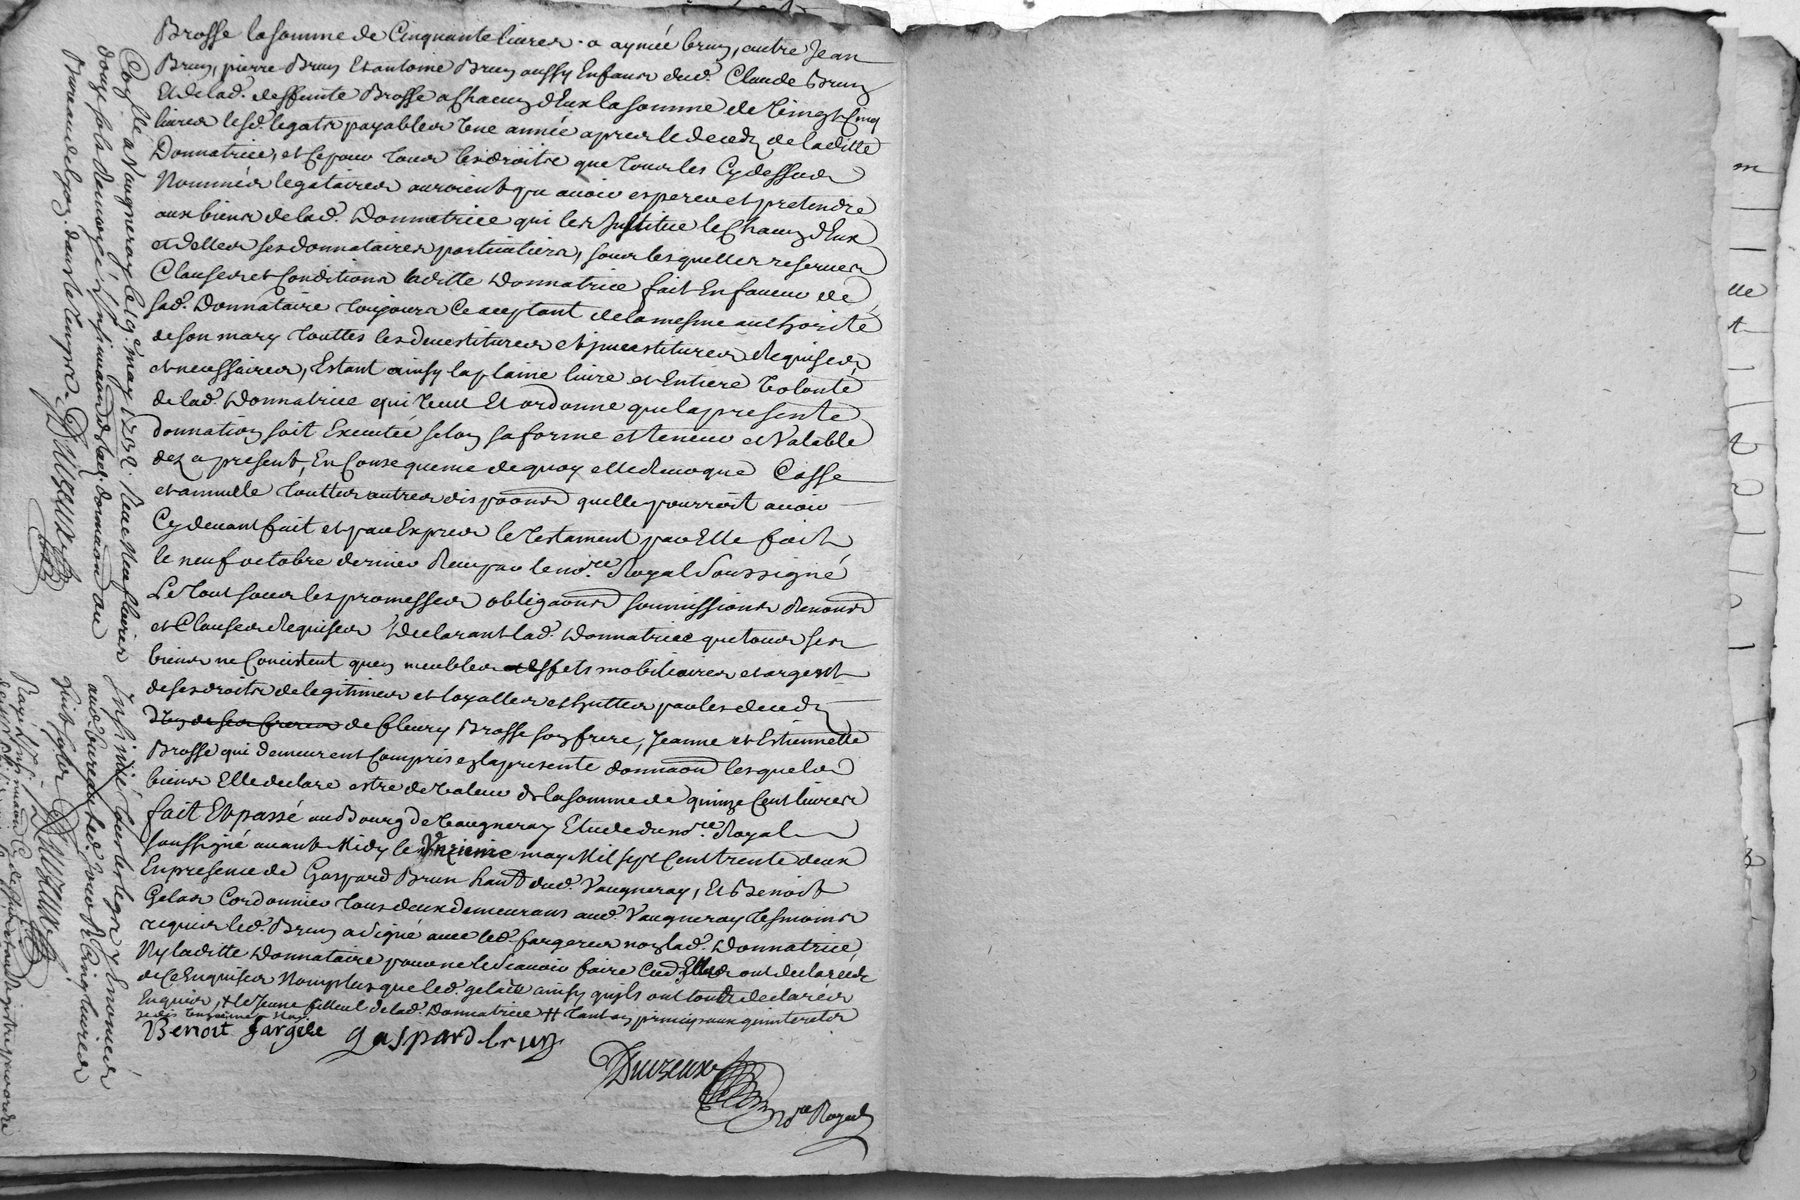 Brosse la somme de Cinquante livres . a aymée brun, autre Jean
Brun, pierre Brun Et antoine Brun aussy Enfans dud. Claude Brun
Et de lad. deffunte Brosse a Chacun d'Eux la somme de Vingt Cinq
livres lesd. legats payables Une année apres le deceds de laditte
Donnatrice, et Ce pour tous les droits que tous les Cy dessus
Nommés legataires auroient pu avoir esperer et pretendre
aux biens de lad. Donnatrice qui les Institue le Chacun d'Eux
et d'elles ses donnataires particuliers, sous lesquelles reserves
Clauses et Conditions laditte Donnatrice fait En faveur de
sad. Donnataire toujours Ce acceptant de la mesme authorité
de son mary touttes les devestitures et jnvestitures Requises
et necessaires, Estant ainsy la plaine livre et Entiere Volonté
de lad. Donnatrice qui Veut Et ordonne que la presente
donnation soit Executée selon sa forme et teneur et Valable
dez a present, En Consequence de quoy elle Revoque Casse
et annulle touttes autres dispoons quelle pourroit avoir
Cy devant fait et par Expres le Testament par Elle fait
le neuf octobre dernier Receu par le nore Royal Soussigné
Le tout sous les promesses obligaons soumissions Renons
et Clauses Requises Declarant lad. Donnatrice que tous ses
biens ne Consistent quen meubles effets mobiliaires et argent
de ses droits de legitimes et loyalles par les deceds
de fleury Brosse son frere, Jeanne et Estiennette
Brosse qui demeurent Compris en la presente donnaon lesquels
biens Elle declare estre de Valeur de la somme de quinze Cent livres
fait Et passé au Bourg de Vaugneray Etude du nore Royal
soussigné avant Midy le Unzieme may Mil sept Cent trente deux
En presence de Gaspard Brun hant dud. Vaugneray, Et Benoit
Gelas Cordonnier tous deux demeurans aud. Vaugneray tesmoins
requis led. Brun a signé avec led. fargeres non lad. Donnatrice
Ny laditte Donnataire pour ne le scavoir faire ont declaré
de Ce Enquises Non plus que led. gelas ainsy quils ont tous declarés
Enquis, + le Jeune filleul de lad. Donnatrice ++ tant en principaux quinterets
Benoit fargere gaspard brun
Duvzeux
nore Royal
Conlle a Vaugneray le 19e may 1732. Receu Neuf livres
douze sols Renvoyé L'Insinuaon de lad. donnaon au
Bureau de Lyon dans le temps Duvzeux
Insinué sur les legs y Enoncés
aud. bureau led. Jour R. Cinq livres
huit sols Duvzeux